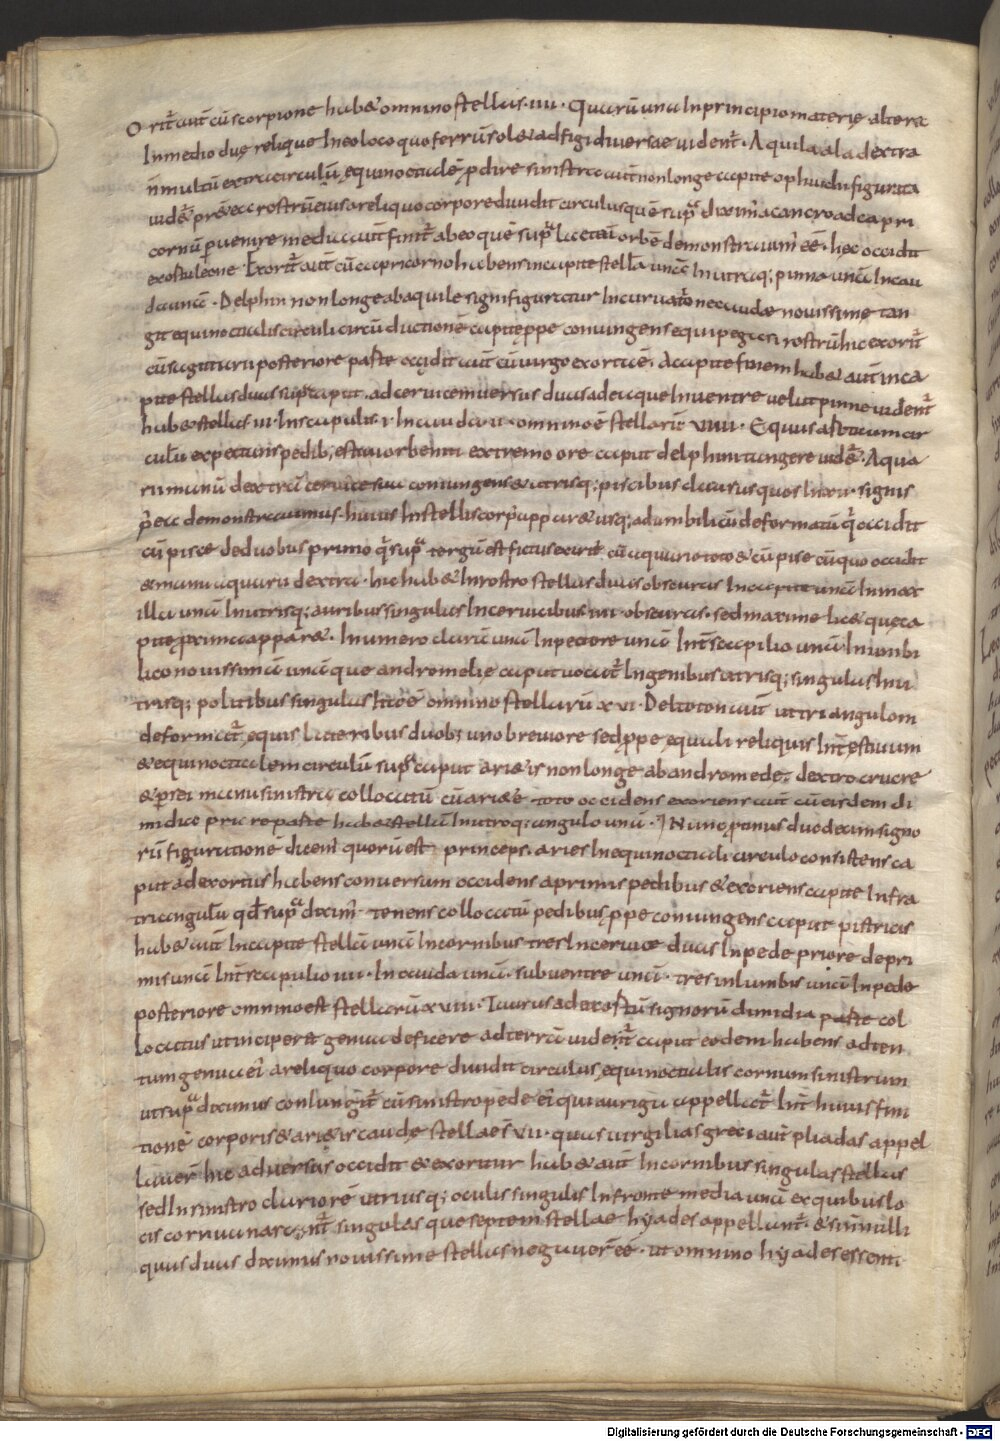 Orit̄ aūt cū scorpione hab& omnino stellas · iiii · Quarū una In principio materię altera
In medio duę relique In eo loco quo ferrū sol& adfigi diversae vident̄ · Aquila ala dextra
n̄ multū extra circulū ęquinoctialē ꝓdire sinistra aūt non longe a capite ophiuchi figurata
uidēt prȩ́ea rostrū eius a reliquo corpore diuidit circulus quē sup̄ diximˀ a cancro ad capri
cornū ꝑuenire media aūt finit̄ ab eo quē sup̄ lacteū orbē demonstrauimˀ eē · hęc occidit
exorto leone Exorit̄ aūt cū capricorno habens in capite stellā unā In utraq; pinna unā In cau
da unā · Delphin non longe ab aquile signi figuratur Incuruatōne caudae nouissime tan
git equinoctialis circuli circū ductionē capite ꝓpe coniungens equi pegasi rostrū hic exorit̄
cū sagittarii posteriore parte occidit aūt cū uirgo exorta ē · A capite finem hab& aūt in ca
pite stellas duas sup̄ caput · ad ceruicem uersus duas ad ea que In uentre uelut pinne uident̄
hab& stellas iii · In scapulis · i · In cauda · ii · omnino ē stellarū · viiii · Equus arcticum cir
culū expectans pedib; estiui orbem extremo ore caput delphini tangere uidēt · Aqua
rii manū dextrā ceruice sua coniungens & utrisq; piscibus clausus quos In xii · signis
p̄ea demonstrauimus · huius In stellis corpˀ apparet usq; ad umbilicū deformatū q̄ occidit
cū pisce de duobus primo q̄ sup̄ tergū est fictus exorit̄ cū aquario toto & cū pisce cū quo occidit
& manu aquarii dextra · hic hab& In rostro stellas duas obscuras In capite unā In max
illa unā In utrisq; auribus singulas In ceruicibus iiii · obscuras · sed maxime lic& que ca
pite proxima appar& · In umero clarā unā In pectore unā Int̄ scapilio unā In umbi
lico nouissimā unā que andromedę caput uocat̄ In genibus utrisq; singulas In u
trisq; politibus singulas Itaq; ē omnino stellarū xvi · Deltoton aūt ut triangulom
deformat̄ ęquis lateribus duob; uno breuiore sed ꝓpe ęquali reliquis Int̄ ęstiuum
& equinoctialem circulū sup̄ caput ari&is non longe ab andromede dextro crure
& p̄sei manu sinistra collocatū cū ari&e toto occidens exoriens aūt cū eisdem di
midia priore parte hab& stellā In utroq; angulo unā · Nunc ꝓtinus duodecim signo
rū figurationē dicem̄ quorū est princeps aries In equinoctiali circulo consistens ca
put ad exortus habens conuersum occidens a primis pedibus & exoriens capite Infra
triangulū qđ sup̄ dixim̄ tenens collocatū pedibus ꝓpe coniungens caput pistricis
hab& aūt In capite stellā unā In cornibus tres In ceruice duas In pede priore de pri
mis unā Int̄ scapulio iiii · In cauda unā · sub uentre unā · tres in lumbis unā In pede
posteriore omnino est stellarū xviii · Taurus ad exortū signorū dimidia parte col
locatus ut incipere genua deficere ad terrā uident̄ caput eodem habens adten
tum genua eī a reliquo corpore diuidit circulus ęquinoctialis cornum sinistrum
ut sup̄ diximus coniungit̄ cū sinistro pede eī qui auriga appellat̄ Int̄ huius fini
tionē corporis & ari&is caudę stellae s vii · quas uirgilias greci aūt pliadas appel
lauer̄ hic aduersus occidit & exoritur hab& aūt In cornibus singulas stellas
sed In sinistro clariorē utriusq; oculis singulis In fronte media unā ex quibus lo
cis cornua nasc;nt̄ singulas que septem stellae hyades appellant̄ · & si nōnulli
quas duas diximus nouissime stellas negauer̄ eē · ut omnino hyades essent
Digitalisierung gefördert durch die Deutsche Forschungsgemeinschaft - DFG